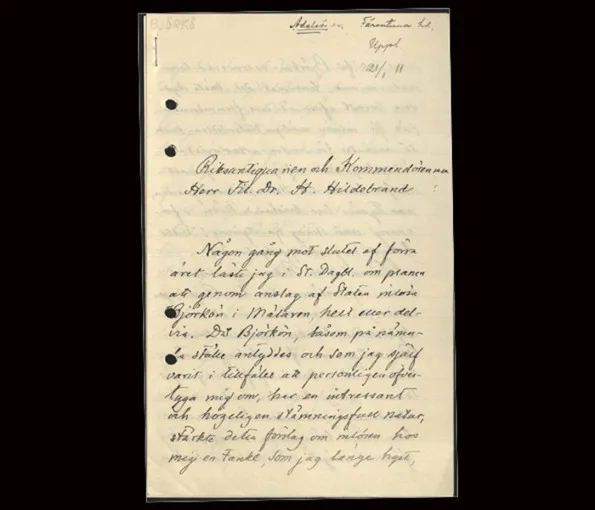 BJÖRKÖ
Adelsö sn Färentuna hd.
Uppl
21/1 11
Riksantiquarien och Kommendören m m
Herr Fil. Dr. H. Hildebrand !
Någon gång mot slutet af förra
året läste jag i St. Dagbl. om planen
att genom anslag af Staten inlösa
Björkön i Mälaren, helt eller del-
vis. Då Björkön, såsom på nämn-
da ställe antyddes och som jag själf
varit i tillfälle att personligen öfver-
tyga mig om, har en intressant
och högeligen stämningsfull natur,
stärkte detta förslag om inlösen hos
mig en tanke, som jag länge hyst,